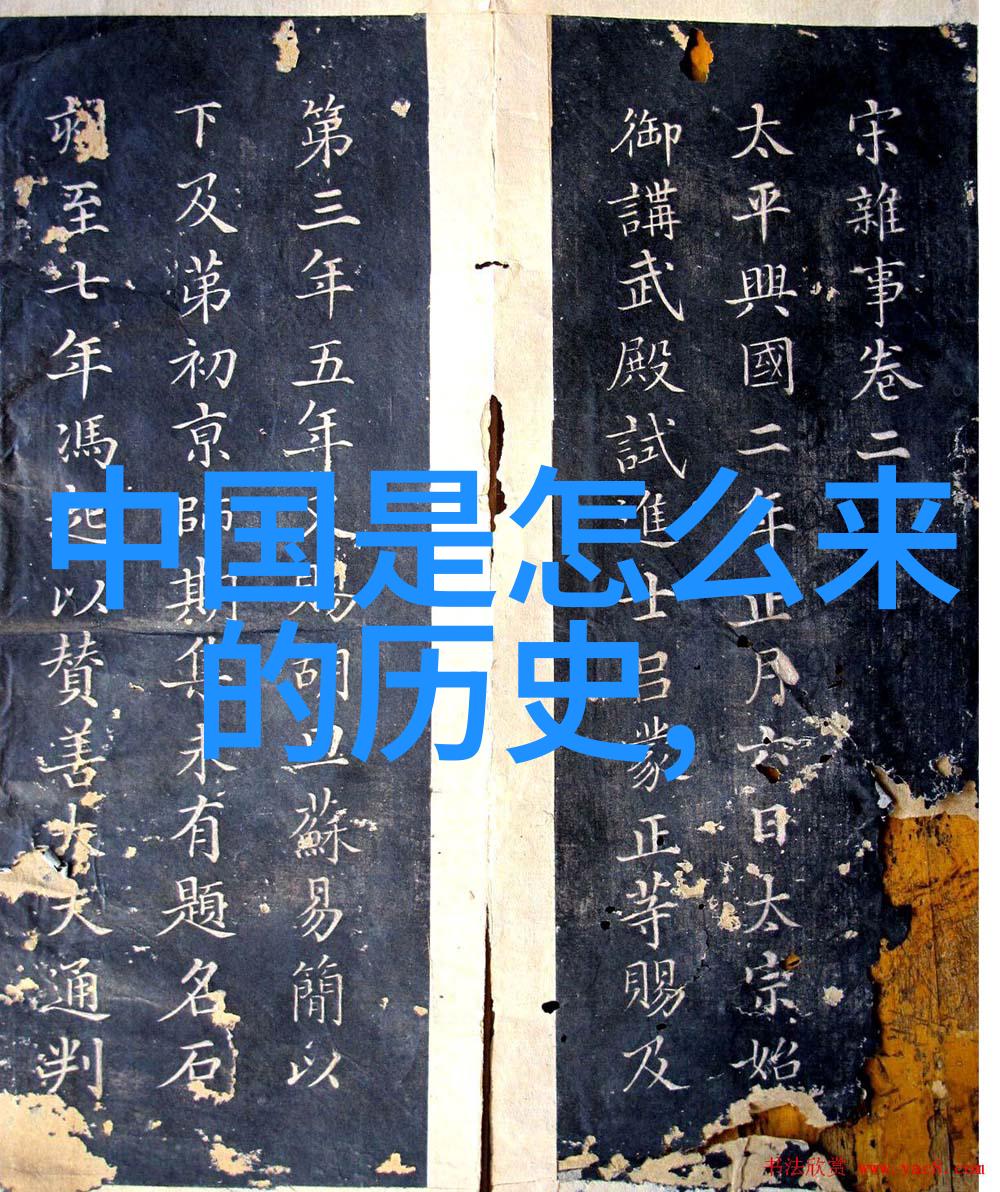 中国是怎么来
的历史,
宋雜事卷二
太平興國二年正月六日太宗始
御講武殿試進士呂蒙正等賜及
第三年五年又賜胡旦蘇易簡以
下及第初京師期集未有題名石
刻至七年馮起以贊善大夫通判
书法欣赏 www.yac8.com